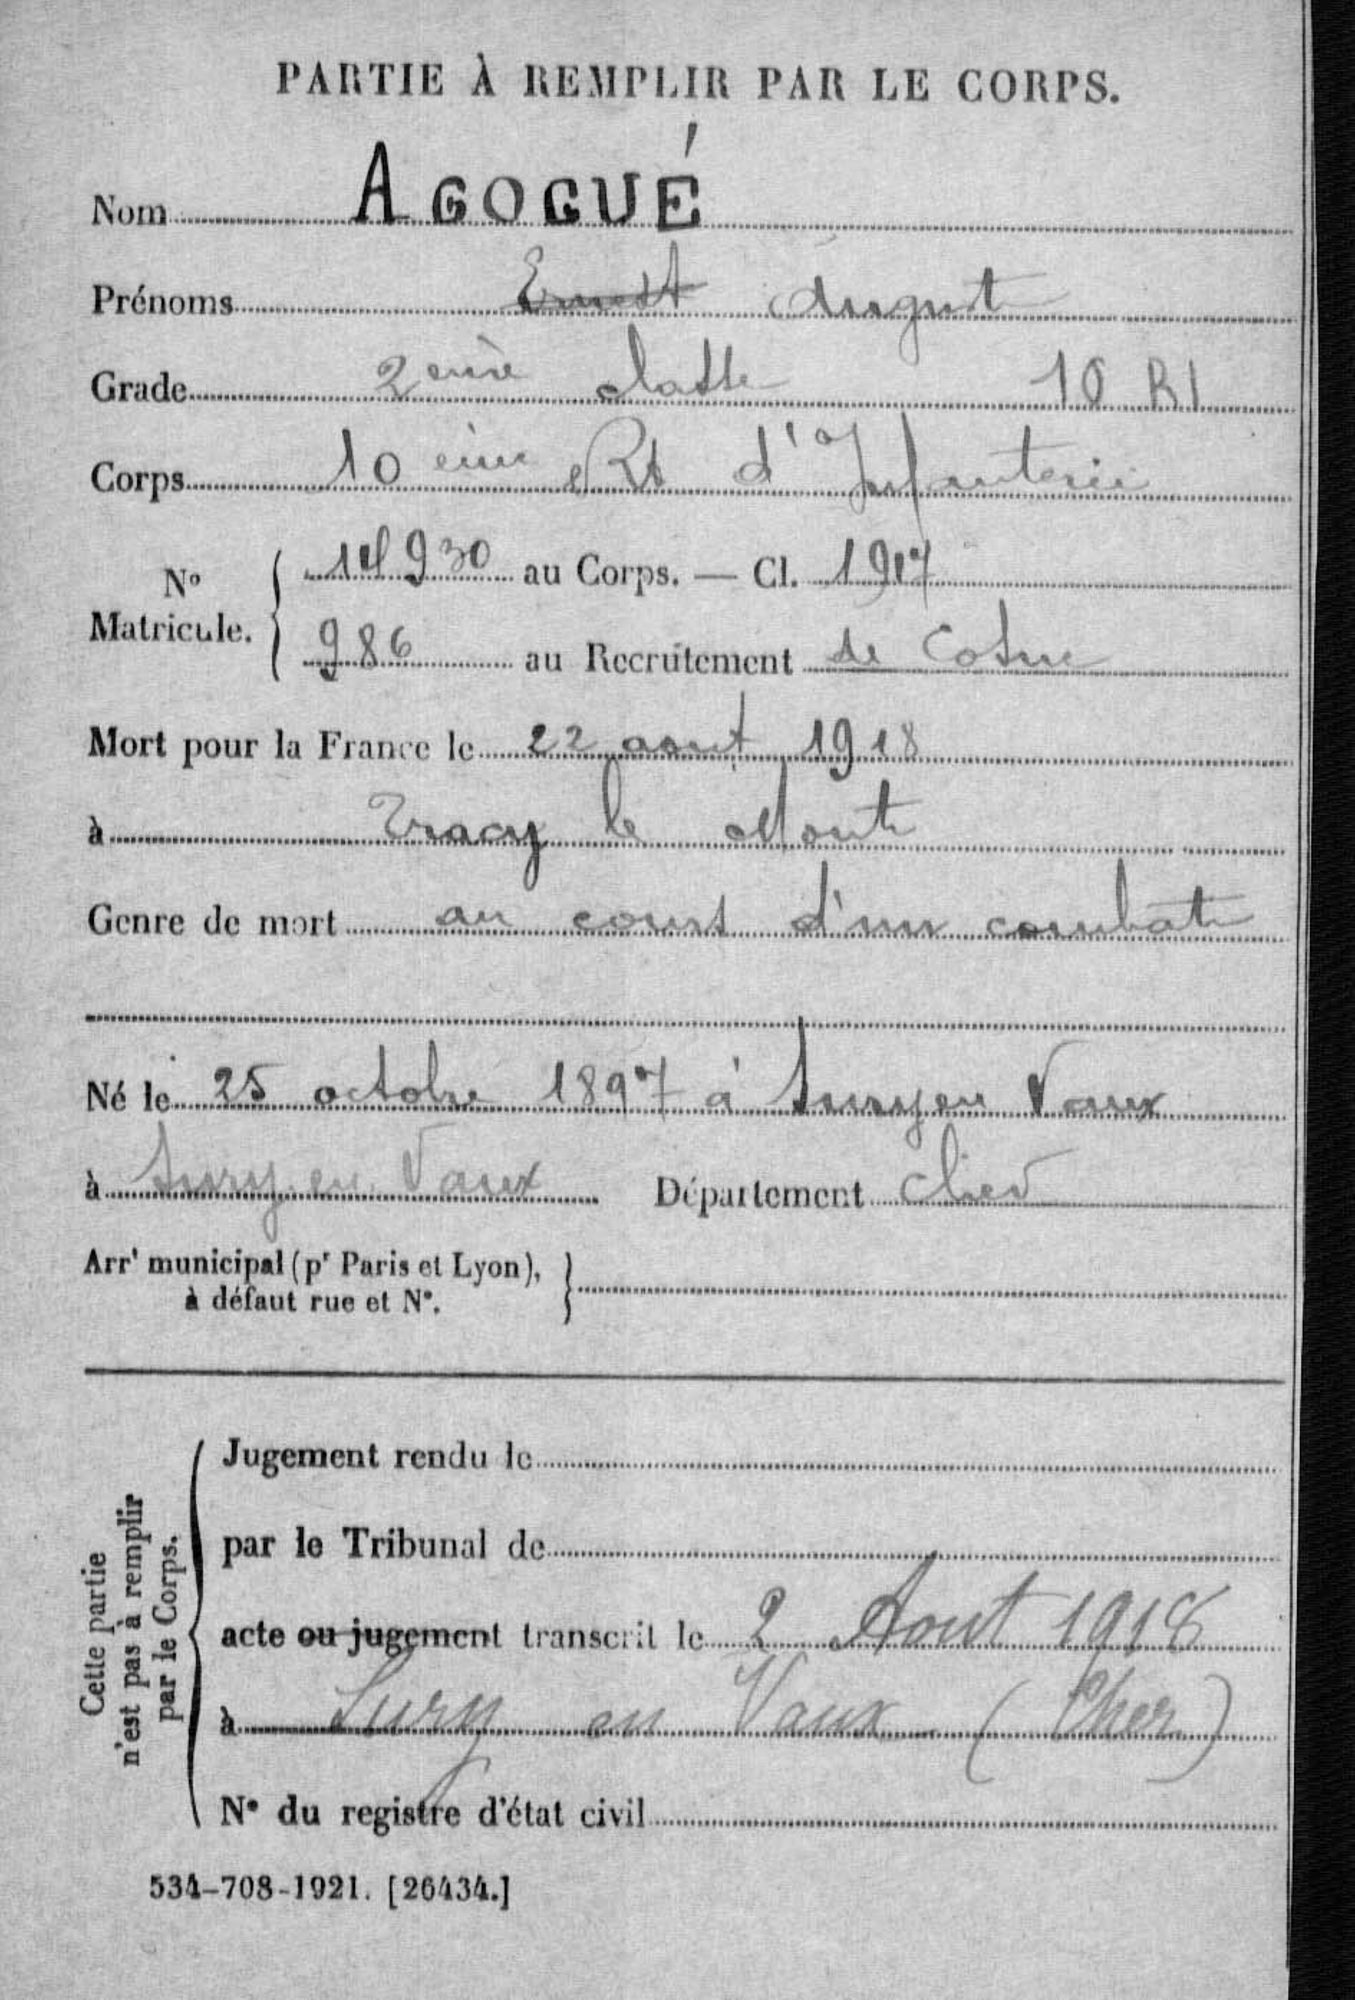 PARTIE À REMPLIR PAR LE CORPS.
Nom AGOGUÉ
Prénoms Ernest August
Grade 2eme classe 10 RI
Corps 10 eme Rt d'Infanterie
No Matricule. 14930 au Corps. — Cl. 1917
986 au Recrutement de Cosne
Mort pour la France le 22 aout 1918
à Tracy le Mont
Genre de mort au cours d'un combat
Né le 25 octobre 1897 à Sury en Vaux
à Sury en Vaux Département Cher
Arrt municipal (pr Paris et Lyon),
à défaut rue et N°.
Cette partie
n'est pas à remplir
par le Corps.
Jugement rendu le
par le Tribunal de
acte ou jugement transcrit le 2 Aout 1918
à Sury en Vaux (Cher)
N° du registre d'état civil
534-708-1921. [26434.]